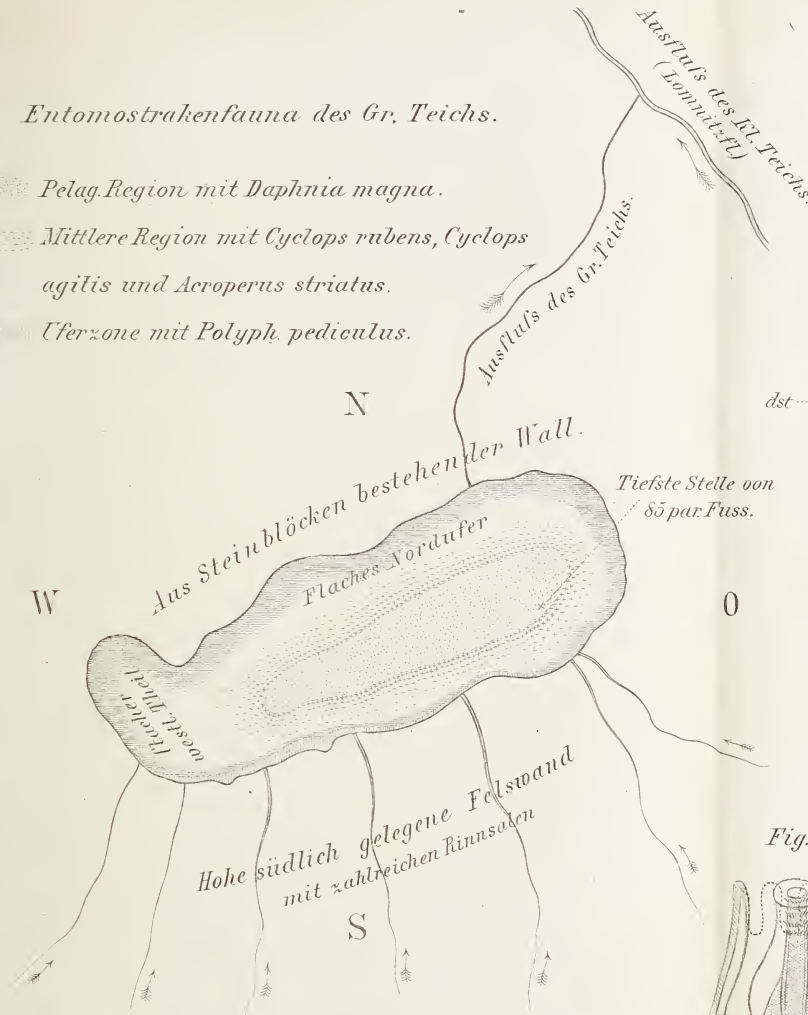 Ausfluſs des Kl. Teichs.
(Lomnitzfl.)
Entomostrakenfauna des Gr. Teichs.
Pelag. Region mit Daphnia magna.
Mittlere Region mit Cyclops rubens, Cyclops
agilis und Acroperus striatus.
Uferzone mit Polyph. pediculus.
Ausfluſs des Gr. Teichs.
N
dst
Aus Steinblöcken bestehender Wall.
Tiefste Stelle von
85 par. Fuss.
Flaches Nordufer
W
O
Flacher
westl. Theil
Hohe südlich gelegene Felswand
mit zahlreichen Rinnsalen
S
Fig.